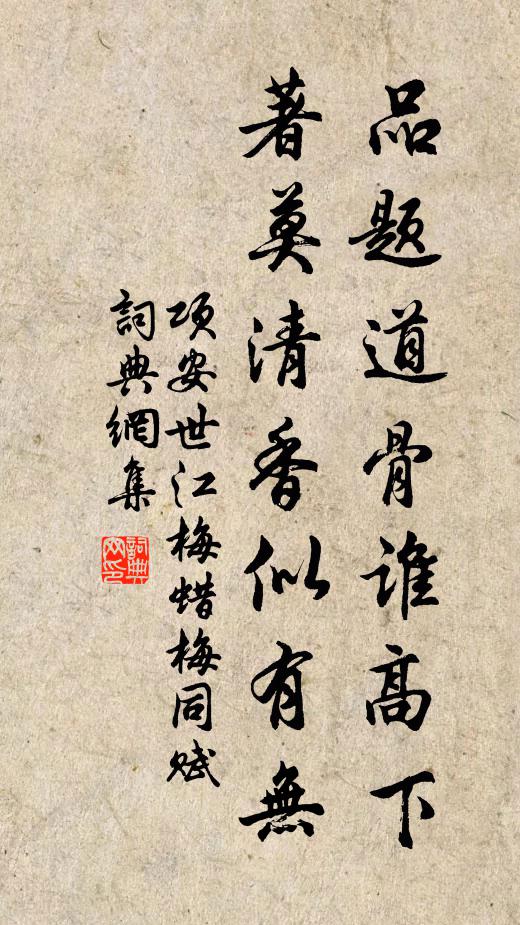 品题道骨谁高下
著莫清香似有無
项安世江梅蜡梅同赋
詞典網集
詞典网印